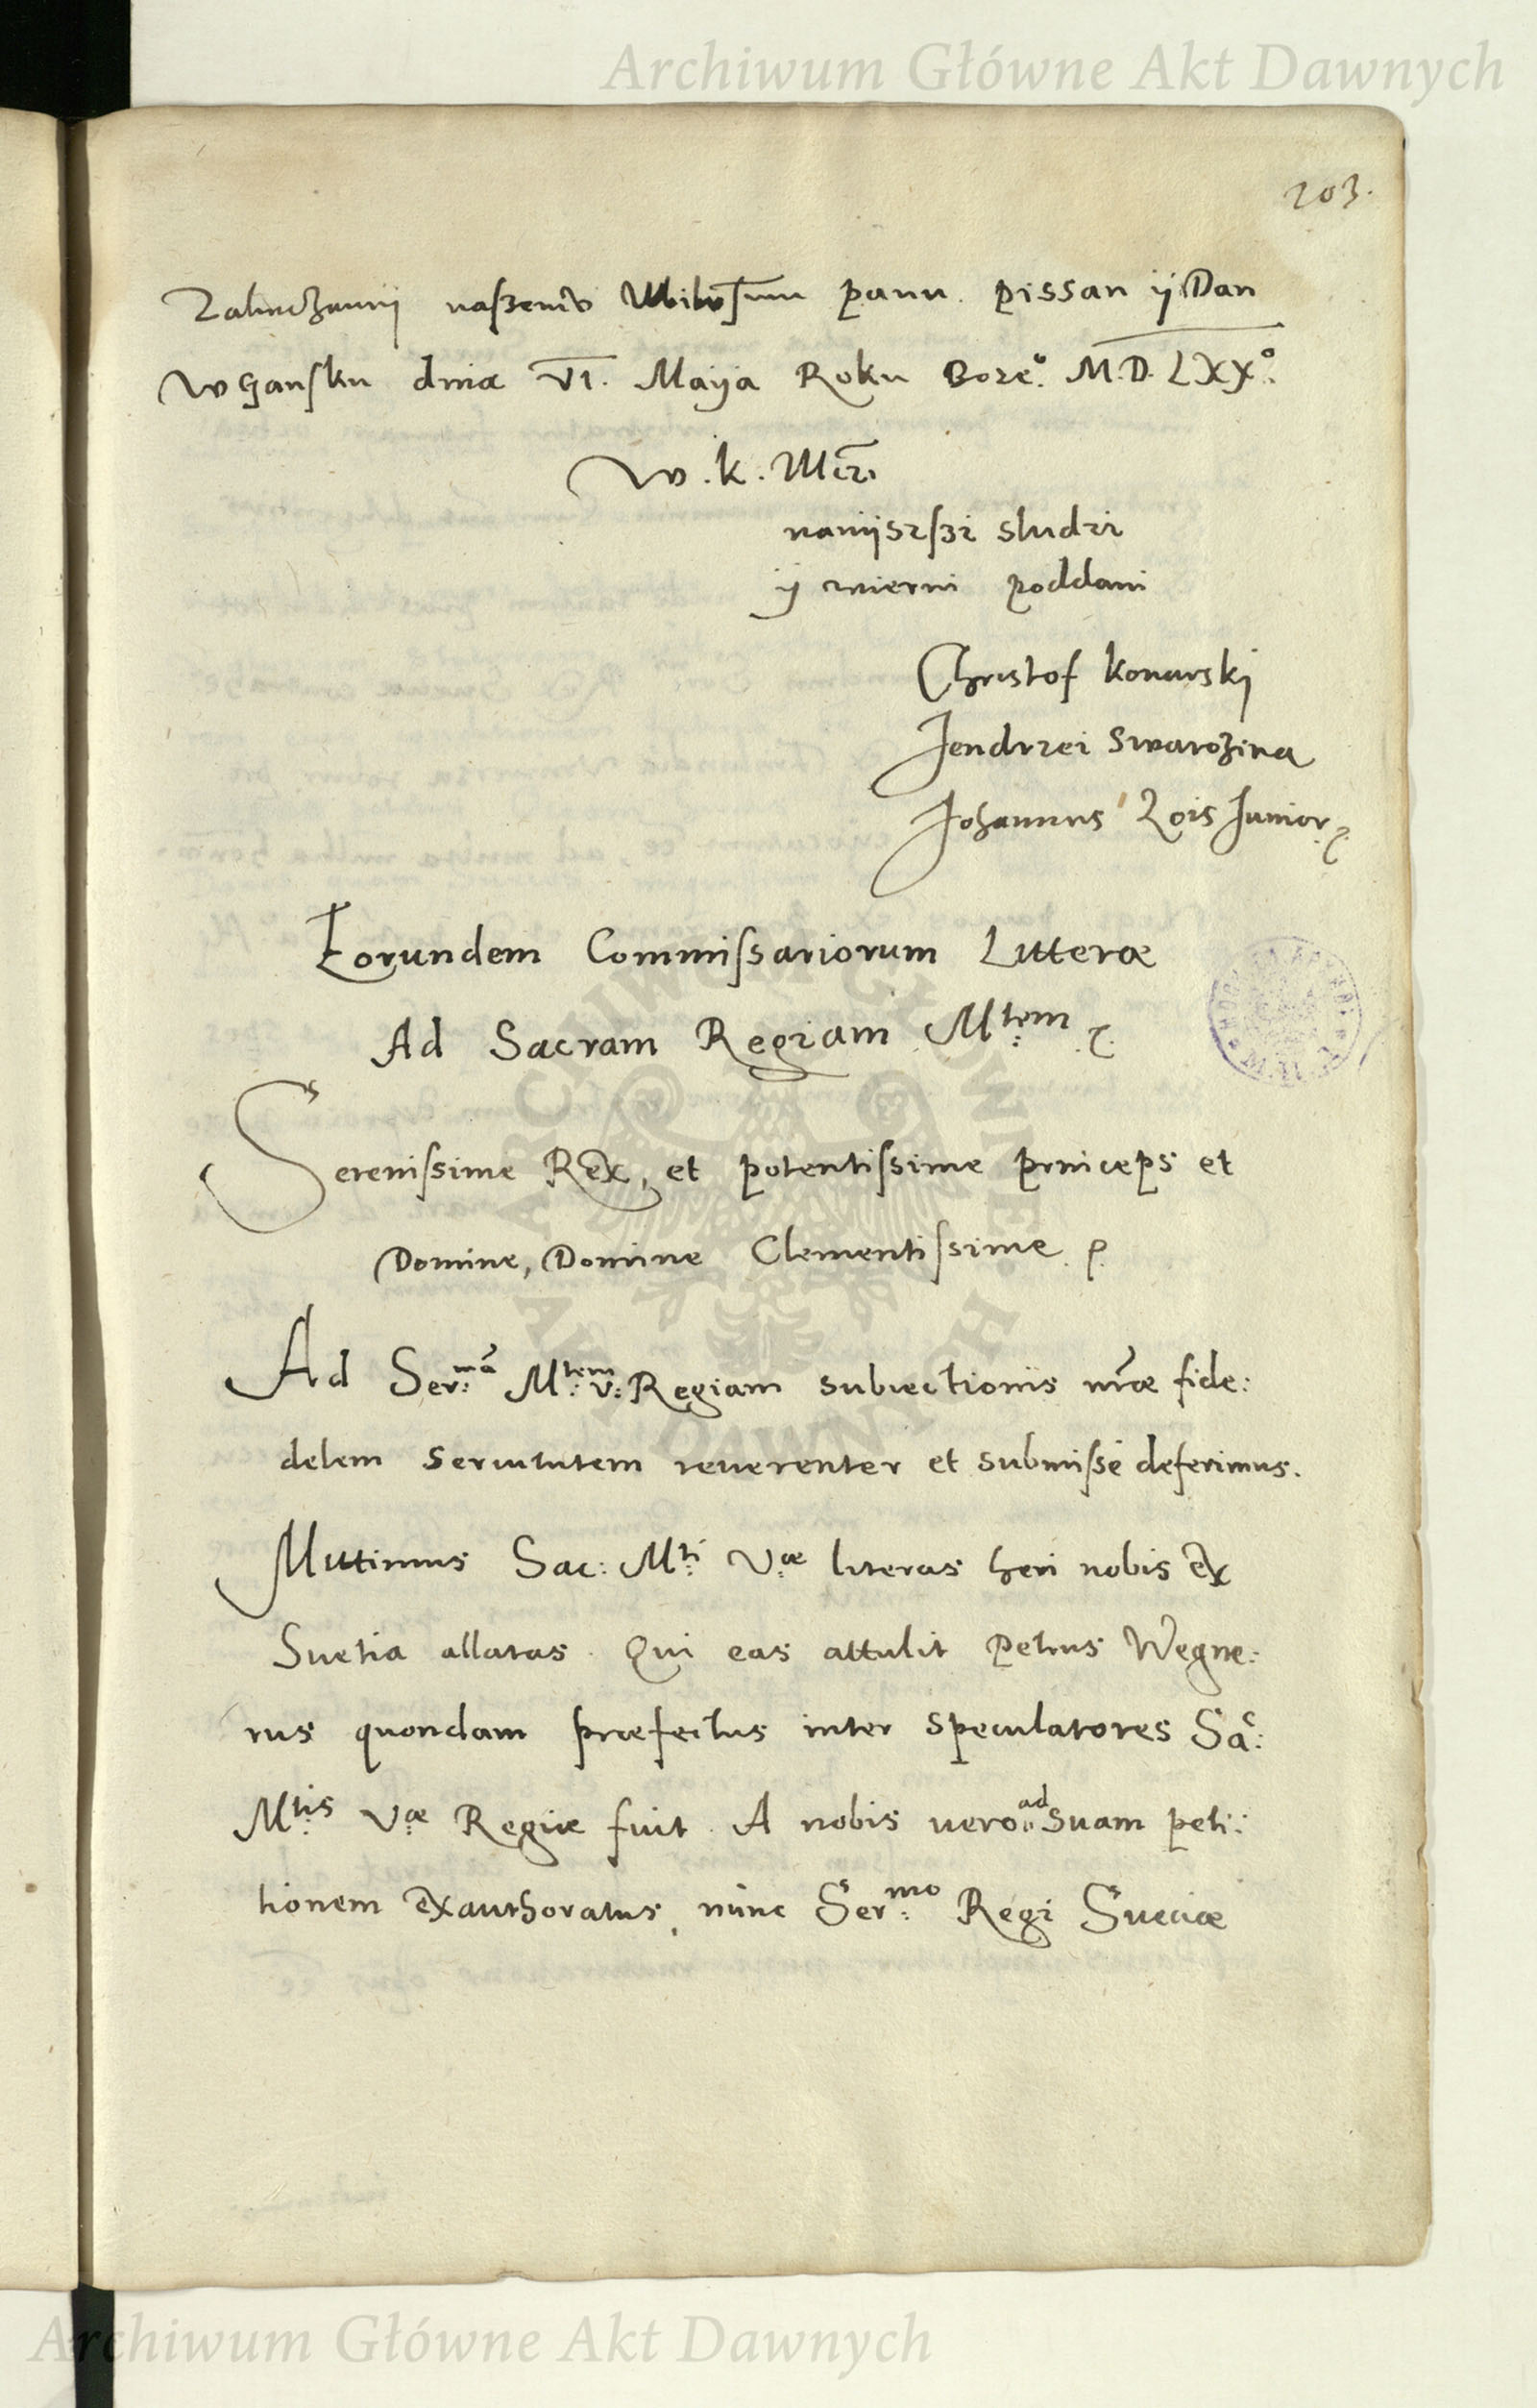 Archiwum Główne Akt Dawnych
203.
naßemu panu. pissan ÿ Dan
w Gansku dnia VI. Maÿa Roku Boze͡º: M.D.LXXº:
W. k. Mczi
naniÿszſzi sludzi
ÿ wierni poddani
Christof Konarski
Jendrzei Swarozina
Johannes Zois Junior
Eorundem Commiſsariorum Litteræ
Ad Sacram Regiam Mtem
Sereniſsime Rex, et potentiſsime princeps et
Domine, Domine Clementiſsime
Ad Ser:mā Mtem: V: Regiam subiectionis nr̃æ fide:
delem seruitutem reuerenter et submiſsè deferimus.
Mittimus Sac: Mti: Væ literas heri nobis ex
Suetia allatas. Qui eas attulit Petrus Wegne:
rus quondam præfectus inter speculatores Sac:
Mtis: Væ Regiæ fuit. A nobis uero ad Suam peti:
tionem exauthoratus, nunc Ser:mo Regi Sueciæ
ARCHIWUM GŁÓWNE AKT DAWNYCH
Archiwum Główne Akt Dawnych